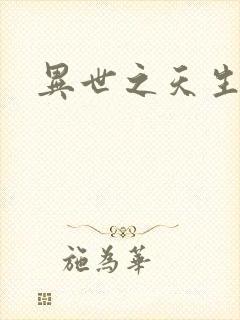 異世之天生
施為華